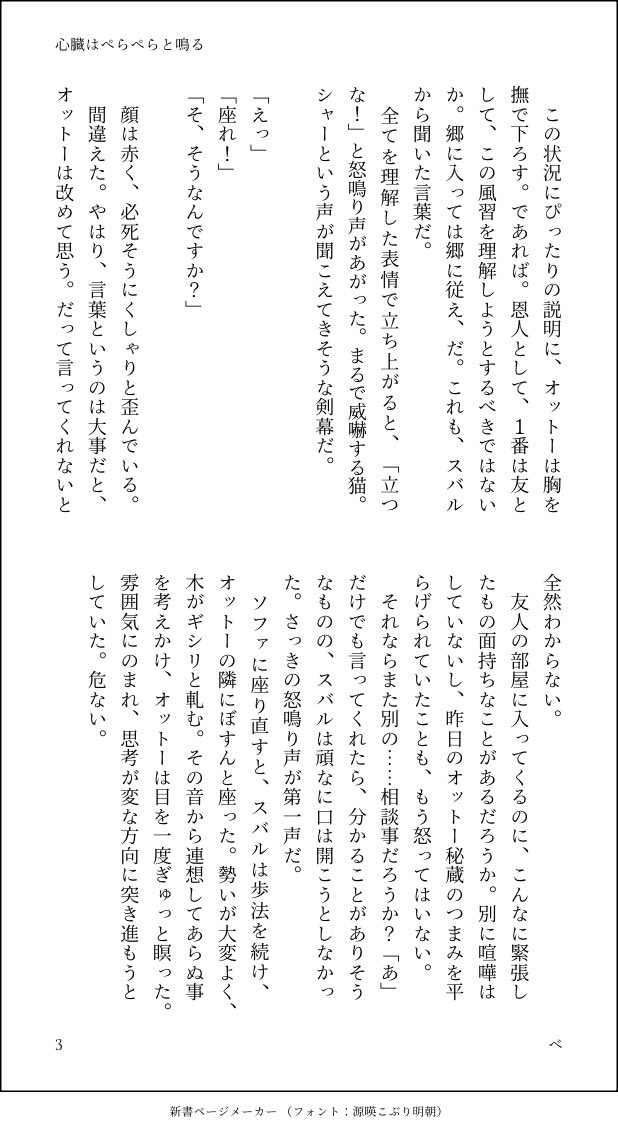 心臓はぺらぺらと鳴る
　この状況にぴったりの説明に、オットーは胸を
撫で下ろす。であれば。恩人として、１番は友と
して、この風習を理解しようとするべきではない
か。郷に入っては郷に従え、だ。これも、スバル
から聞いた言葉だ。
　全てを理解した表情で立ち上がると、「立つ
な！」と怒鳴り声があがった。まるで威嚇する猫。
シャーという声が聞こえてきそうな剣幕だ。
「えっ」
「座れ！」
「そ、そうなんですか？」
　顔は赤く、必死そうにくしゃりと歪んでいる。
　間違えた。やはり、言葉というのは大事だと、
オットーは改めて思う。だって言ってくれないと
全然わからない。
　友人の部屋に入ってくるのに、こんなに緊張し
たもの面持ちなことがあるだろうか。別に喧嘩は
していないし、昨日のオットー秘蔵のつまみを平
らげられていたことも、もう怒ってはいない。
　それならまた別の……相談事だろうか？「あ」
だけでも言ってくれたら、分かることがありそう
なものの、スバルは頑なに口は開こうとしなかっ
た。さっきの怒鳴り声が第一声だ。
　ソファに座り直すと、スバルは歩法を続け、
オットーの隣にぼすんと座った。勢いが大変よく、
木がギシリと軋む。その音から連想してあらぬ事
を考えかけ、オットーは目を一度ぎゅっと瞑った。
雰囲気にのまれ、思考が変な方向に突き進もうと
していた。危ない。
3
べ
新書ページメーカー（フォント：源暎こぶり明朝）